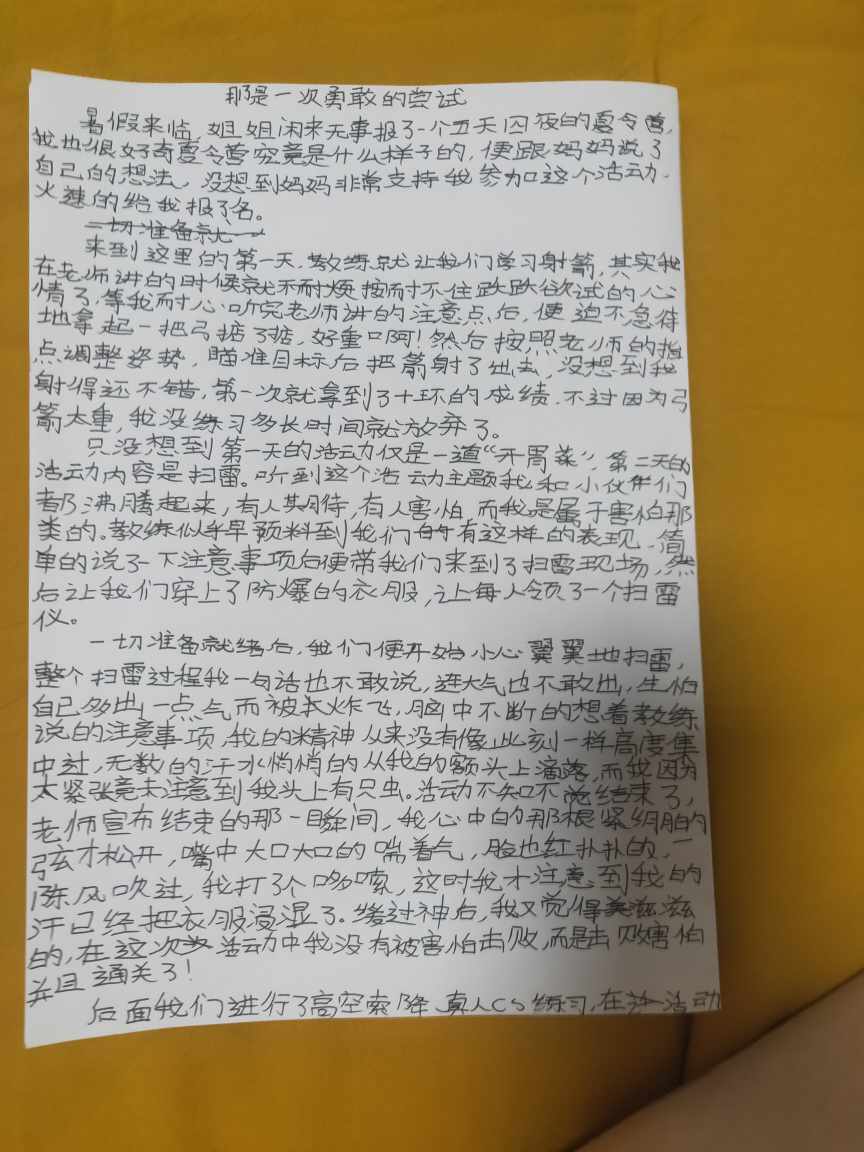 那是一次勇敢的尝试
暑假来临,姐姐闲来无事报了一个五天四夜的夏令营,
我也很好奇夏令营究竟是什么样子的,便跟妈妈说了
自己的想法,没想到妈妈非常支持我参加这个活动,
火速的给我报了名。
一切准备就
来到这里的第一天,教练就让我们学习射箭,其实我
在老师讲的时候就不耐烦按耐不住跃跃欲试的心
情了,等我耐心听完老师讲的注意点后,便迫不急待
地拿起一把弓掂了掂,好重啊!然后按照老师的指
点调整姿势,瞄准目标后把箭射了出去,没想到我
射得还不错,第一次就拿到了十环的成绩,不过因为弓
箭太重,我没练习多长时间就放弃了。
只没想到第一天的活动仅是一道“开胃菜”,第二天的
活动内容是扫雷。听到这个活动主题我和小伙伴们
都沸腾起来,有人期待,有人害怕,而我是属于害怕那
类的。教练似乎早预料到我们有这样的表现,简
单的说了一下注意事项后便带我们来到了扫雷现场,然
后让我们穿上了防爆的衣服,让每人领了一个扫雷
仪。
一切准备就绪后,我们便开始小心翼翼地扫雷,
整个扫雷过程我一句话也不敢说,连大气也不敢出,生怕
自己多出一点气而被炸飞,脑中不断的想着教练
说的注意事项,我的精神从来没有像此刻一样高度集
中过,无数的汗水悄悄的从我的额头上滴落,而我因为
太紧张竟未注意到我头上有只虫。活动不知不觉结束了,
老师宣布结束的那一瞬间,我心中的那根紧绷的
弦才松开,嘴中大口大口的喘着气,脸也红扑扑的,一
阵风吹过,我打了个哆嗦,这时我才注意到我的
汗已经把衣服浸湿了。缓过神后,我又觉得美滋滋
的,在这次活动中我没有被害怕击败,而是击败害怕
并且通关了!
后面我们进行了高空索降、真人CS练习,在活动